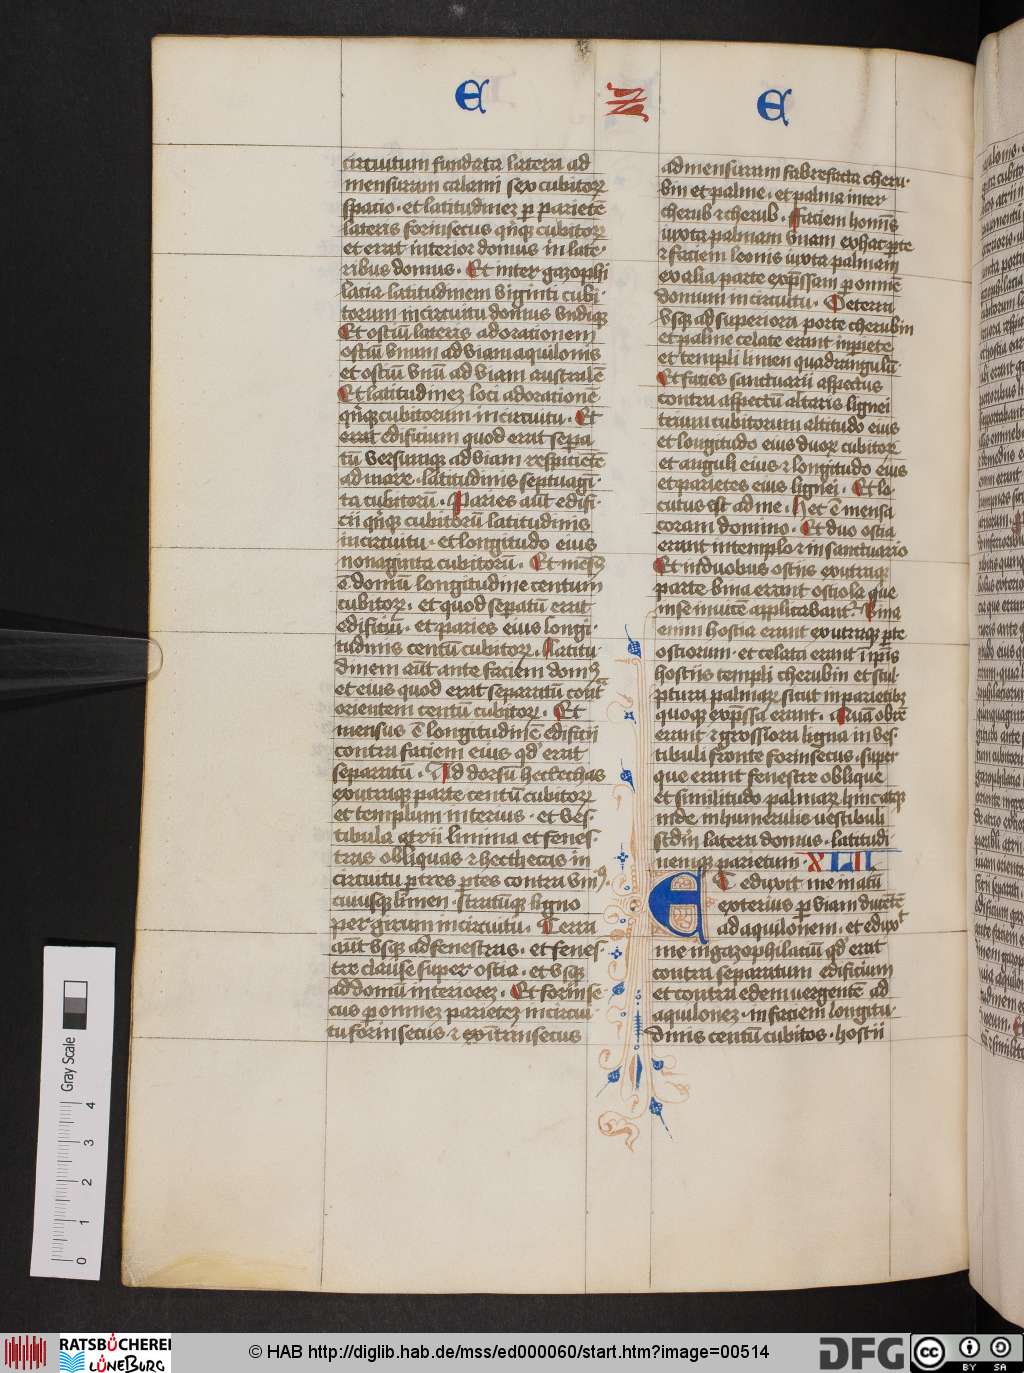 E Z E
circuitum fundata latera ad
mensuram calami sex cubitoꝝ
spatio · et latitudinez ꝑ ꝑarietē
lateris forinsecus qn̄qꝫ cubitoꝝ
et erat interior domus in late-
ribus domus · Et inter gazophi
lacia latitudinem viginti cubi-
torum in circuitu domus vndiqꝫ
Et ostiū lateris ad orationem
ostiū vnum ad viam aquilonis
et ostiū vnū ad viam australē
Et latitudinez loci ad orationē
qn̄qꝫ cubitorum in circuitu · Et
erat edificium quod erat sepa
tū versumqꝫ ad viam respicietē
ad mare · latitudinis septuagī-
ta cubitorū · Paries aūt edifi-
cii qn̄qꝫ cubitorū latitudinis
in circuitu · et longitudo eius
nonaginta cubitorū · Et mesꝰ
ē domū longitudine centum
cubitoꝝ · et quod sepatū erat
edificiū · et paries eius longi-
tudinis centū cubitoꝝ · Latitu-
dinem aūt ante faciem domꝰ
et eius quod erat separatū cont̄
orientem centū cubitoꝝ · Et
mensus ē longitudinē edificii
contra faciem eius qd' erat
separatū · Ad dorsū hethechas
ex utraqꝫ parte centū cubitoꝝ
et templum interius · et ves-
tibula atrii limina et fenes-
tras obliquas ⁊ hethecas in
circuitu ꝑ tres ꝑtes contra vniꝰ
cuiusqꝫ limen · stratūqꝫ ligno
per girum in circuitu · Terra
aūt vsqꝫ ad fenestras · et fenes-
tre clause super ostia · et vsqꝫ
ad domū interiorez · Et forinse-
cus ꝑ omnez parietez in circui-
tu forinsecus · ⁊ extrinsecus
ad mensuram fabrefacta cheru-
bin et palme · et palma inter
cherub ⁊ cherub · Faciem hominis
iuxta palmam vnam ex hac ꝑte
⁊ faciem leonis iuxta palmam
ex alia parte expssam ꝑ omnē
domum in circuitu · De terra
vsqꝫ ad superiora porte cherubin
et palme celate erant in ꝑiete
et templi limen quadrangulū
Et facies sanctuarii aspectus
contra aspectū altaris lignei
trium cubitorum altitudo eius
et longitudo eius duoꝝ cubitoꝝ
et anguli eius ⁊ longitudo eius
et parietes eius lignei · Et lo-
cutus est ad me · Hec ē mensa
coram domino · Et duo ostia
erant in templo ⁊ in sanctuario
Et in duobus ostiis ex utraqꝫ
parte bina erant ostiola que
in se inuicē applicabant · Bina
enim hostia erant ex utraqꝫ ꝑte
ostiorum · et celata erant ī ipis
hostiis templi cherubin et scul-
ptura palmaꝝ sicut in parietibꝫ
quoqꝫ expssa erant · Quā obrē
erant ⁊ grossiora ligna in ves-
tibuli fronte forinsecus · super
que erant fenestre oblique
et similitudo palmaꝝ hinc atqꝫ
inde in humerulis vestibuli
scdm̄ latera domus · latitudi-
nemqꝫ parietum · XLII
ET eduxit me in atriū
exterius ꝑ viam ducentē
ad aquilonem · et eduxit
me in gazophilaciū qd' erat
contra separatum edificium
et contra edem vergentē ad
aquilonez · in faciem longitu-
dinis centū cubitos · hostii
Gray Scale
0 1 2 3 4
RATSBÜCHEREI
LÜNEBURG
© HAB http://diglib.hab.de/mss/ed000060/start.htm?image=00514
DFG
cc BY SA